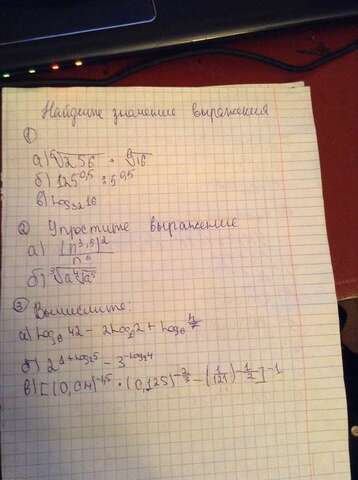 Найдите значение выражения
①
а) ⁶√256 · ⁶√16
б) 125^0,5 : 5^0,5
в) log₃₂16
② Упростите выражение
а) (n^3,5)² / n⁵
б) ³√a ⁴√a⁵
③ Вычислите:
а) log₆ 42 - 2log₆2 + log₆
б) 2^1+log₂5 - 3^-log₃4
в) [(0,04)^-1,5 · (0,125)^-2/3 - (1/121)^-1/2]^-1